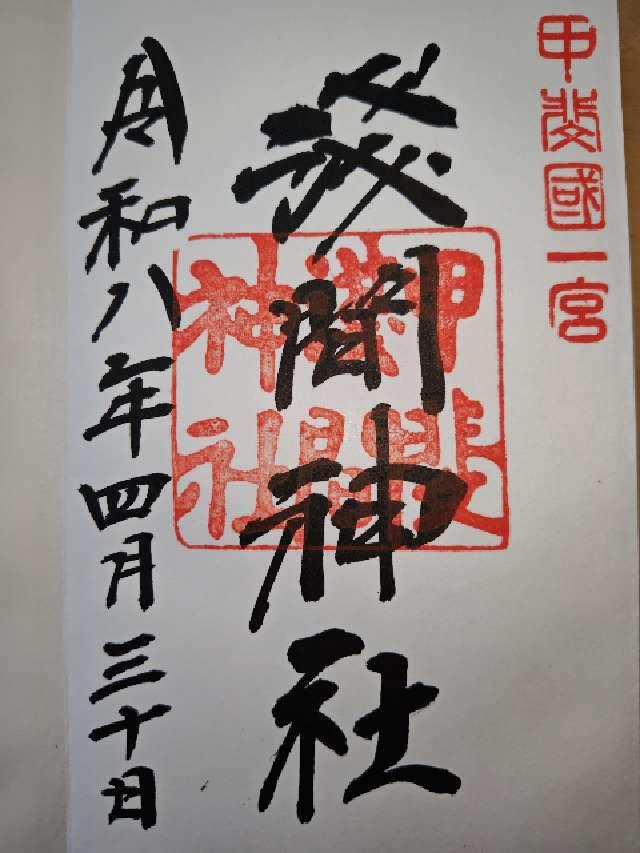 甲斐國一宮
淺間神社
甲斐
淺間
神社
令和八年四月三十日